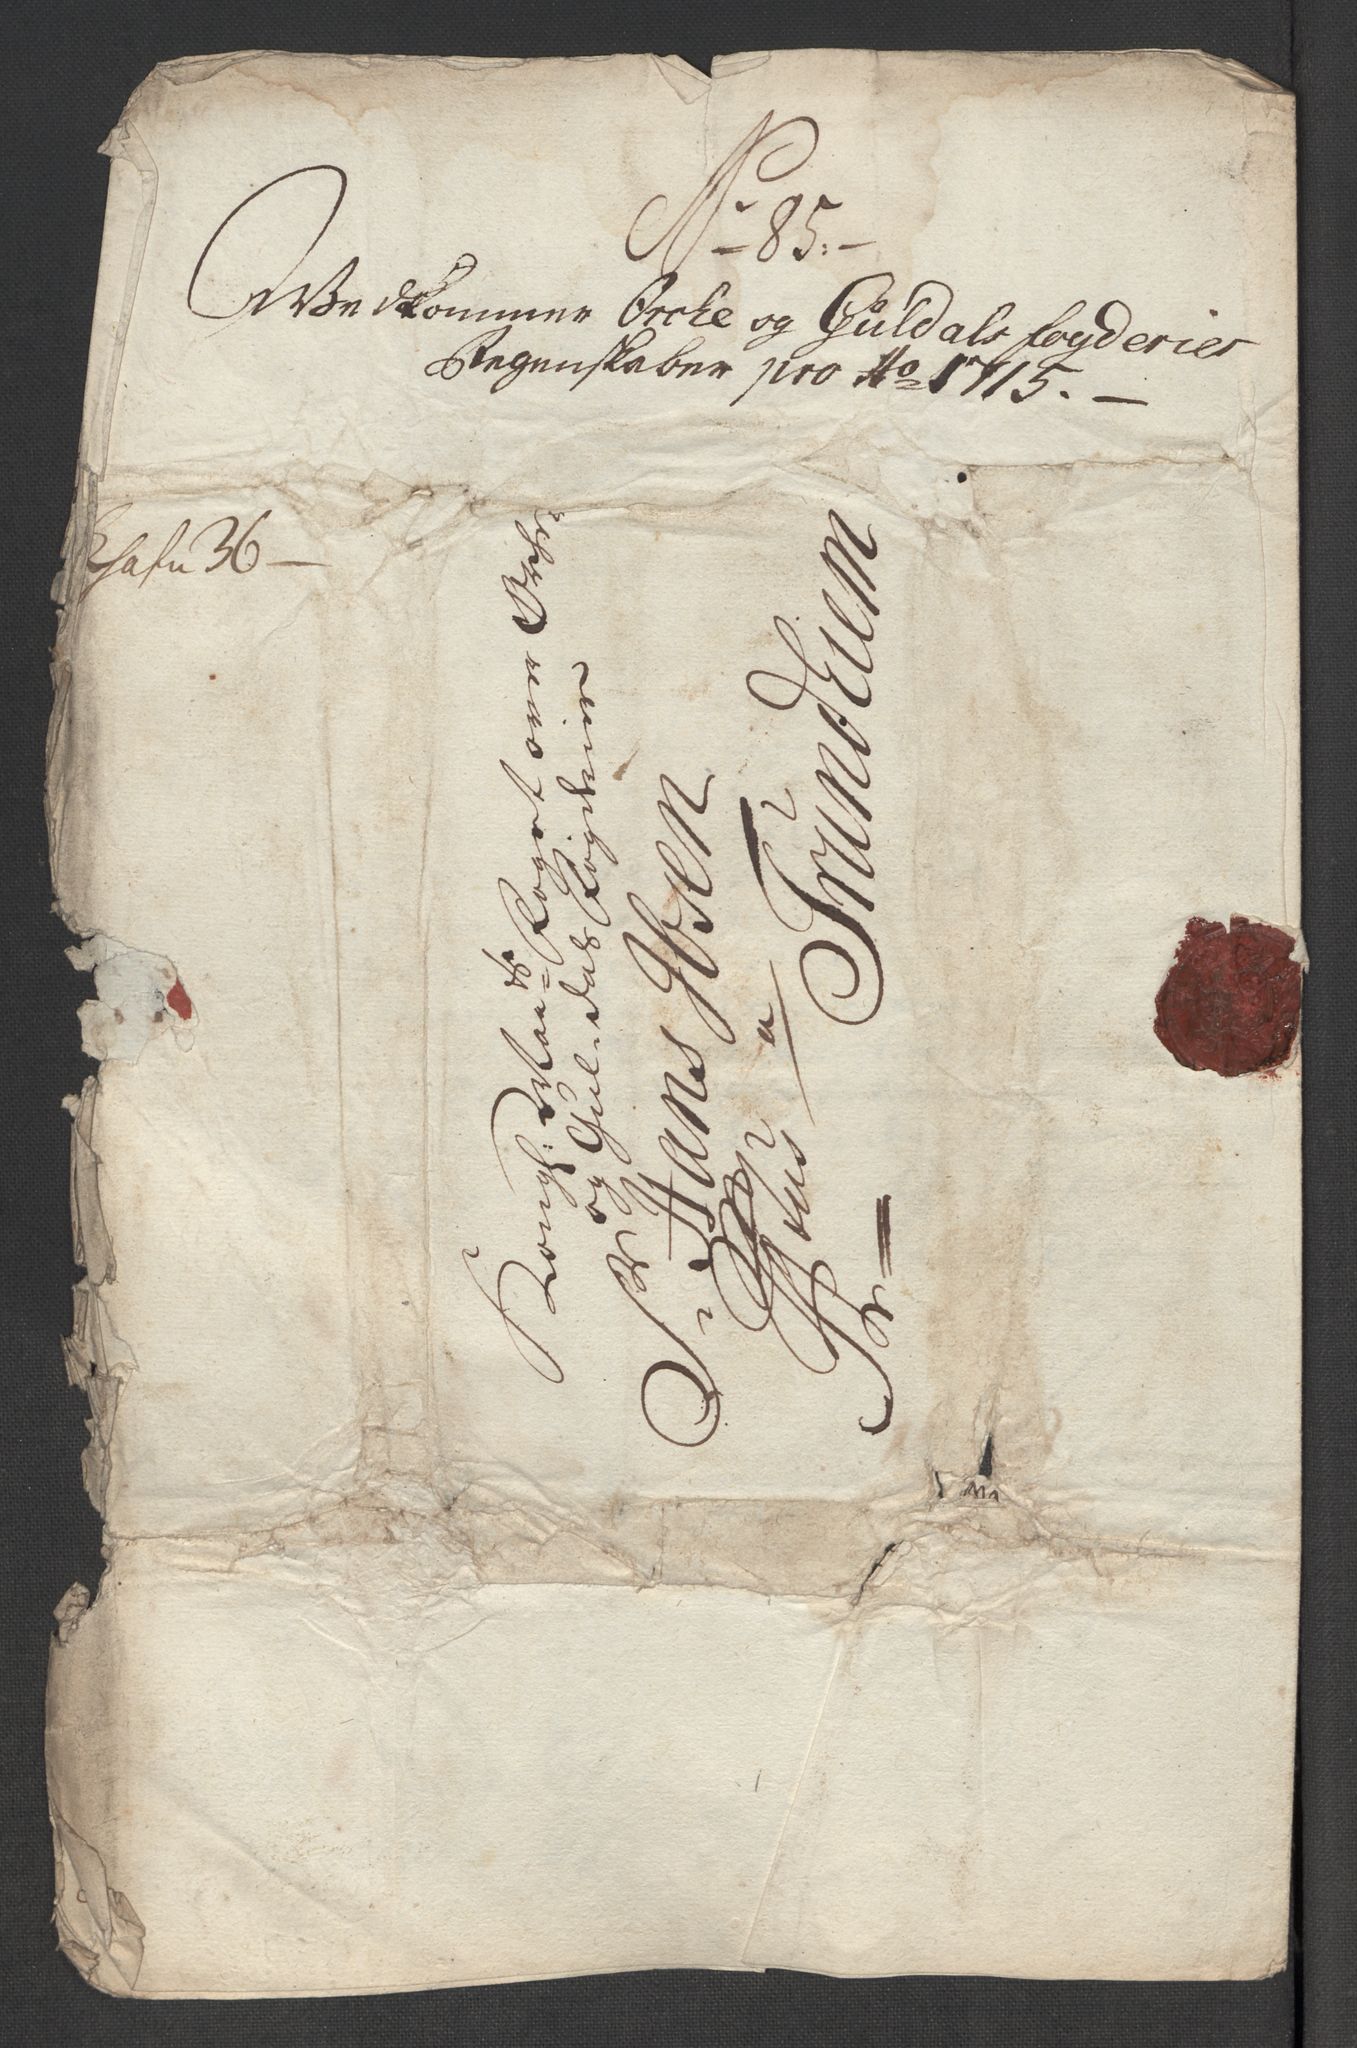 No 85.
Vedkommer Orcke og Guldals fogderier
Regenskaber pro Ao 1715.
36
Kongl: May:ts Foget over Orche
og Guldals Fogderier
Sr Hans Ibsen
a
Trundhiem